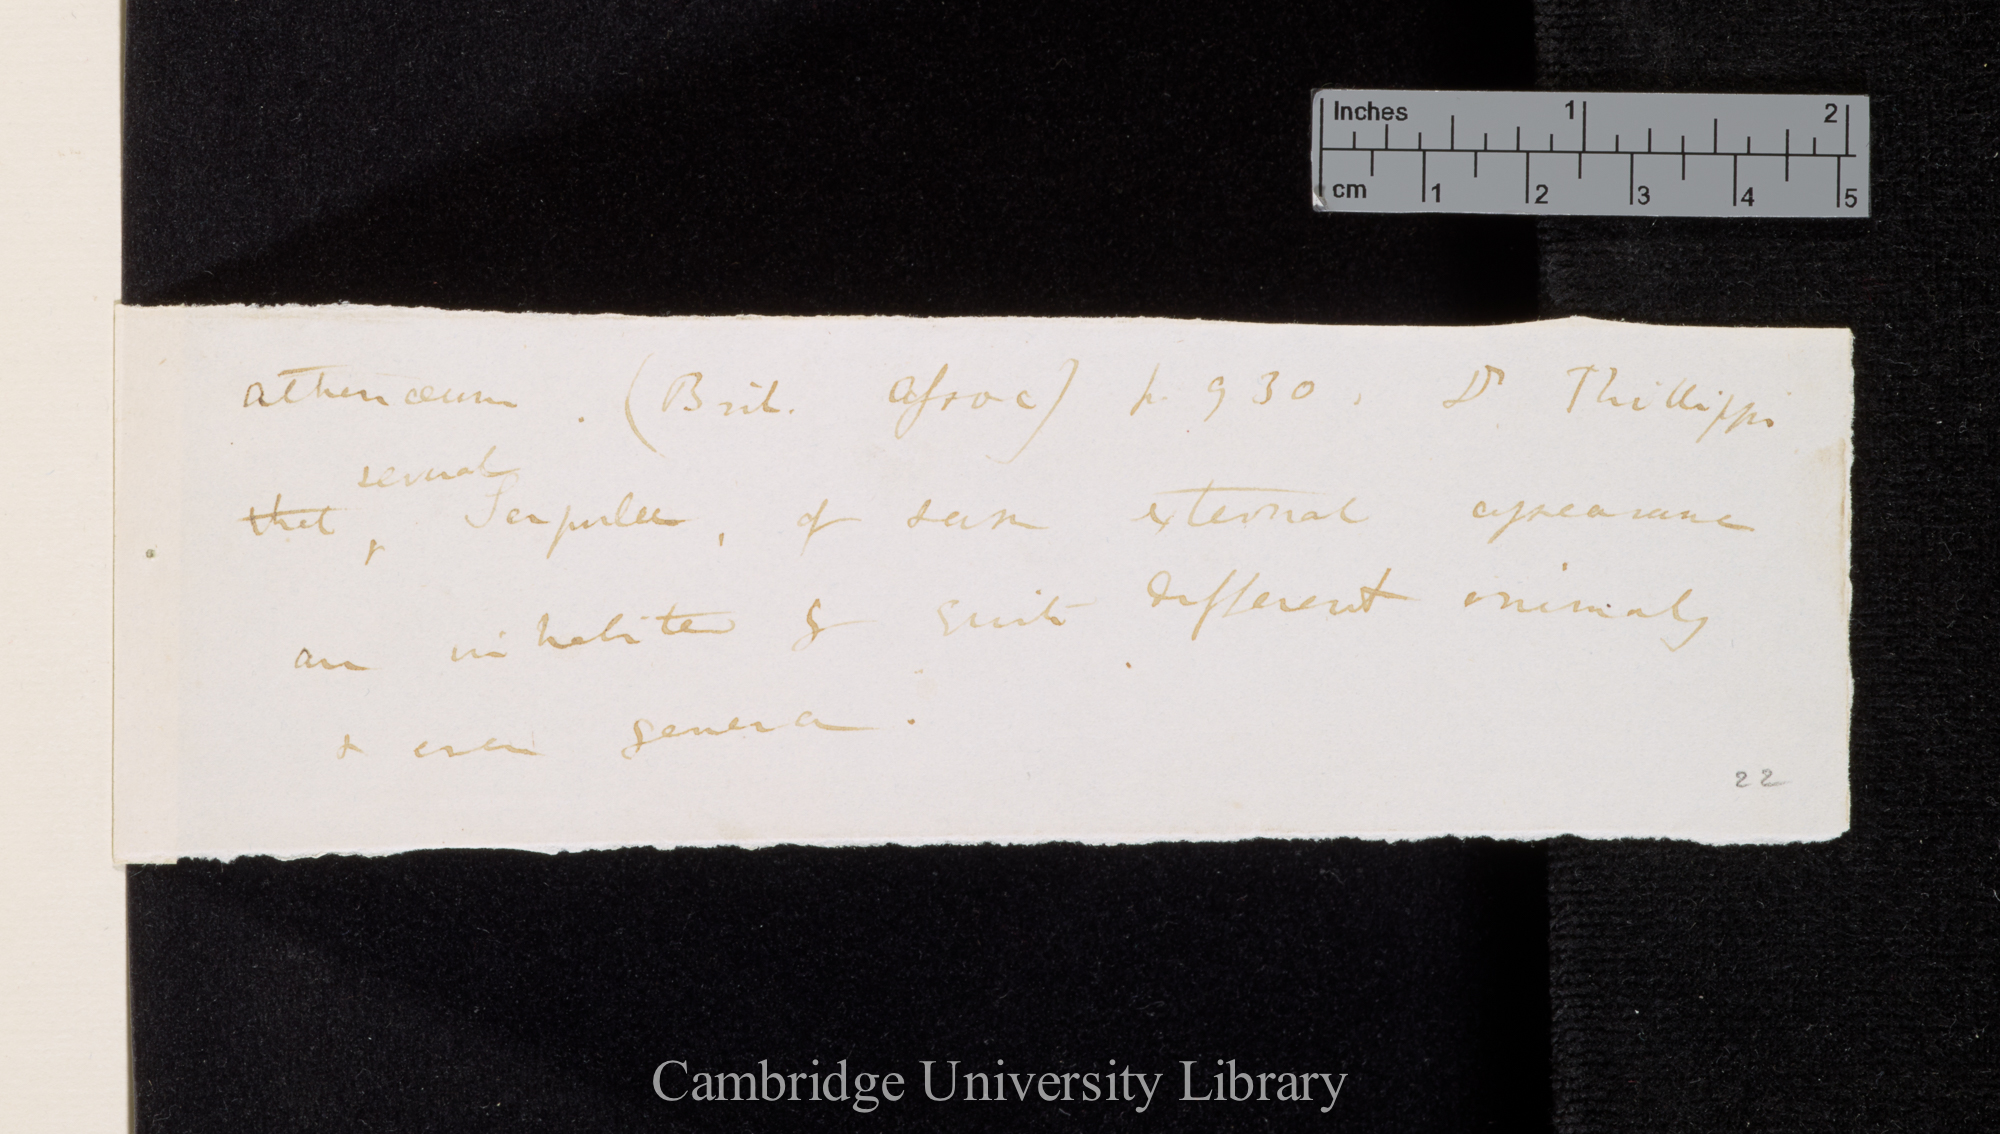 Inches 1 2
cm 1 2 3 4 5
Athenæum. (Brit. Assoc) p. 930. Dr Phillippi
several
that Serpulæ, of same external appearance
are inhabited by quite different animals
& even genera.
22
Cambridge University Library